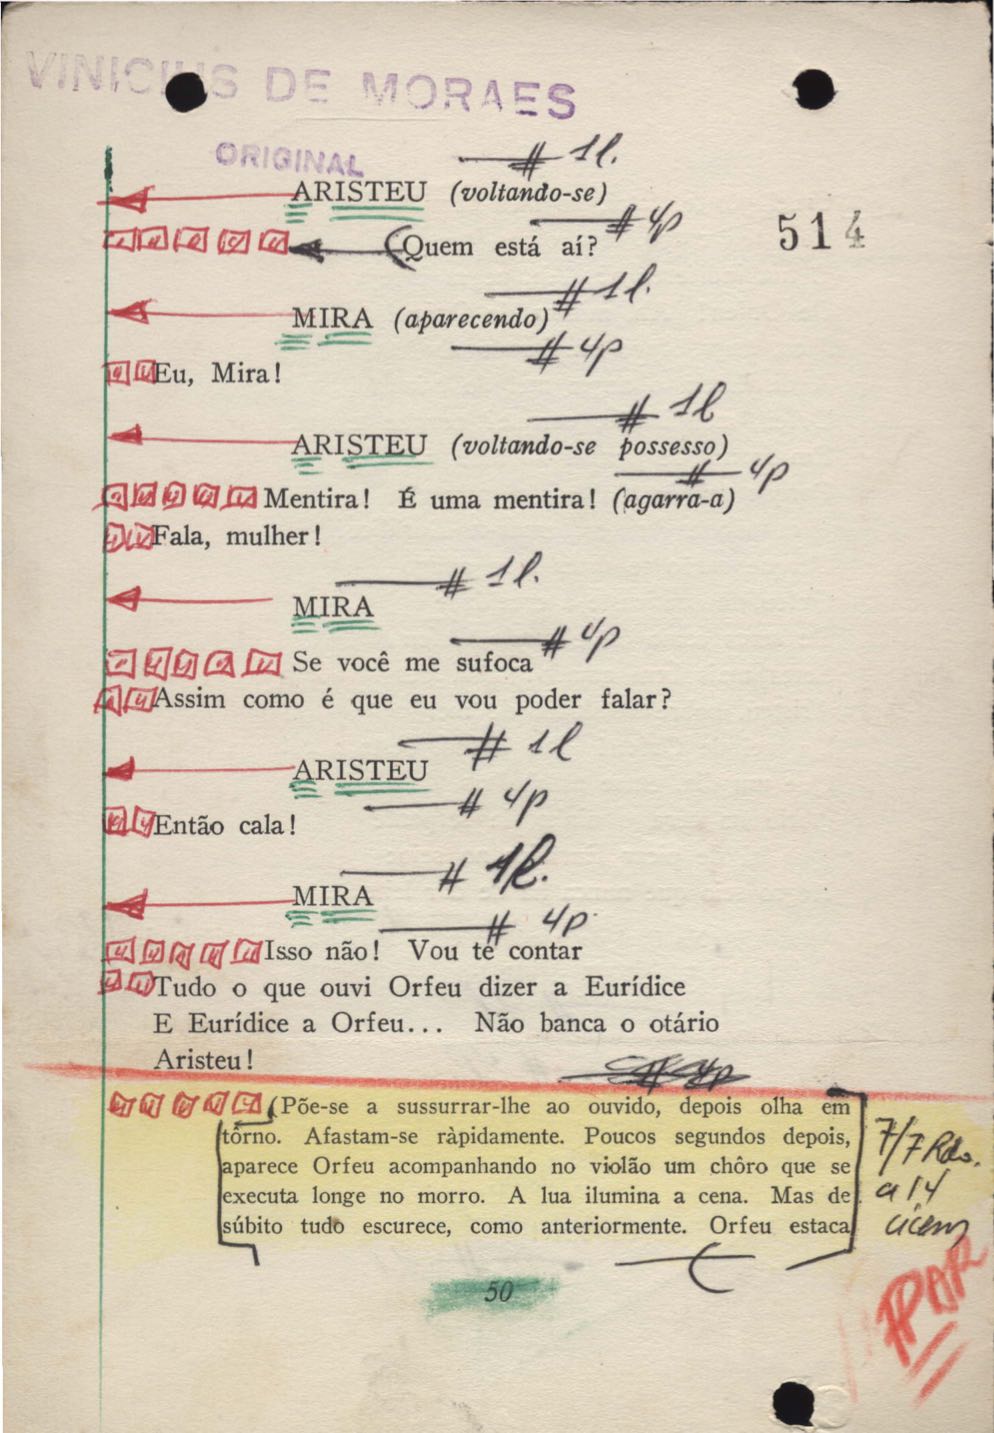 VINICIUS DE MORAES
ORIGINAL
# 1l.
ARISTEU (voltando-se)
# 4p
Quem está aí?
514
# 1l.
MIRA (aparecendo)
# 4p
Eu, Mira!
# 1l
ARISTEU (voltando-se possesso)
# 4p
Mentira! É uma mentira! (agarra-a)
Fala, mulher!
# 1l.
MIRA
# 4p
Se você me sufoca
Assim como é que eu vou poder falar?
# 1l
ARISTEU
# 4p
Então cala!
# 1l.
MIRA
# 4p
Isso não! Vou te contar
Tudo o que ouvi Orfeu dizer a Eurídice
E Eurídice a Orfeu... Não banca o otário
Aristeu!
(Põe-se a sussurrar-lhe ao ouvido, depois olha em
tôrno. Afastam-se ràpidamente. Poucos segundos depois,
aparece Orfeu acompanhando no violão um chôro que se
executa longe no morro. A lua ilumina a cena. Mas de
súbito tudo escurece, como anteriormente. Orfeu estaca
7/7 Rdo.
a 14
50
PAR